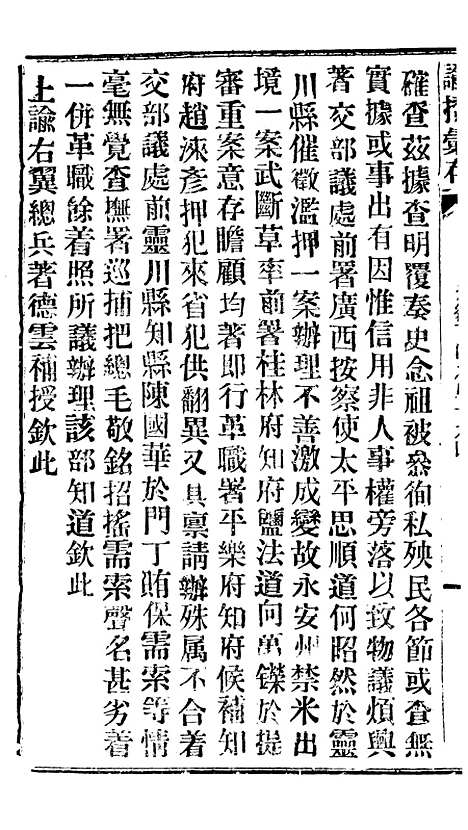 諭摺彙存
確查茲據查明覆奏史念祖被叅徇私殃民各節或查無
實據或事出有因惟信用非人事權旁落以致物議煩興
著交部議處前署廣西按察使太平思順道何昭然於靈
川縣催徵濫押一案辦理不善激成變故永安州禁米出
境一案武斷草率前署桂林府知府鹽法道向萬鑅於提
審重案意存瞻顧均著即行革職署平樂府知府候補知
府趙淶彥押犯來省犯供翻異又具禀請辦殊属不合着
交部議處前靈川縣知縣陳國華於門丁賄保需索等情
毫無覺查撫署巡捕把總毛敬銘招搖需索聲名甚劣着
一併革職餘着照所議辦理該部知道欽此
上諭右翼總兵著德雲補授欽此